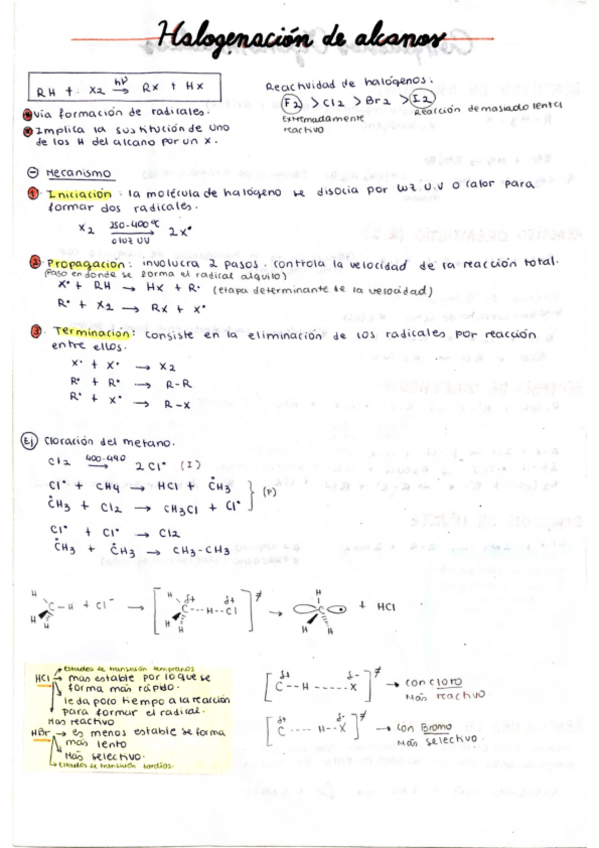 Halogenación de alcanos
RH + X2 hν → RX + HX
Reactividad de halógenos:
F2 > Cl2 > Br2 > I2
Extremadamente reactivo
Reacción demasiado lenta
Vía formación de radicales.
Implica la sustitución de uno
de los H del alcano por un X.
Mecanismo
1 Iniciación: la molécula de halógeno se disocia por luz U.V o calor para
formar dos radicales.
X2 250-400ºC → o luz UV 2X•
2 Propagación: involucra 2 pasos. controla la velocidad de la reacción total.
(Paso en donde se forma el radical alquilo)
X• + RH → HX + R• (etapa determinante de la velocidad)
R• + X2 → RX + X•
3 Terminación: consiste en la eliminación de los radicales por reacción
entre ellos.
X• + X• → X2
R• + R• → R-R
R• + X• → R-X
Ej Cloración del metano.
Cl2 400-490 → 2Cl• (I)
Cl• + CH4 → HCl + ĊH3
ĊH3 + Cl2 → CH3Cl + Cl• } (P)
Cl• + Cl• → Cl2
ĊH3 + ĊH3 → CH3-CH3
H H H C-H + Cl• → [H H H C δ+ --- H -- Cl δ-]≠ → H H H C + HCl
Estados de transición tempranos
HCl → más estable por lo que se
forma más rápido.
le da poco tiempo a la reacción
para formar el radical.
Más reactivo
HBr → es menos estable se forma
más lento
Más selectivo.
Estados de transición tardíos.
[C δ+ --H ------X δ-]≠ → con cloro
Más reactivo
[C δ+ ---- H--X δ-]≠ → con Bromo
Más selectivo.